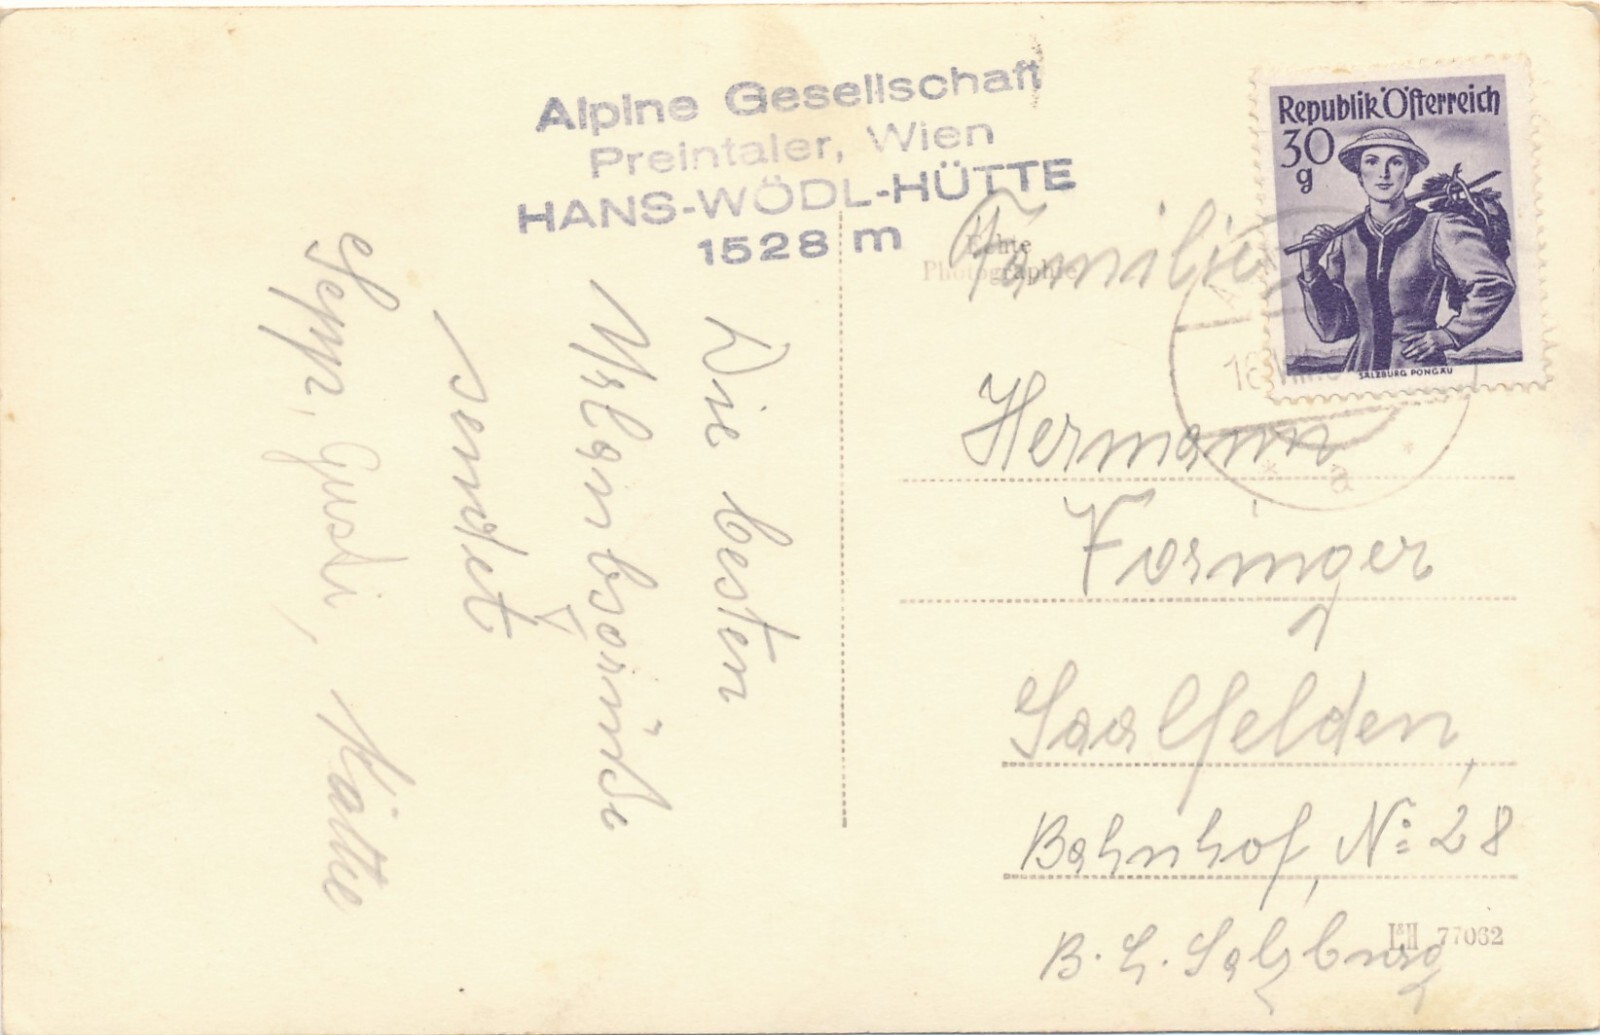 Alpine Gesellschaft
Preintaler, Wien
HANS-WÖDL-HÜTTE
1528 m
Republik Österreich
30
g
SALZBURG PONGAU
16.VIII.
* a *
Echte
Photographie
Die besten
Urlaubsgrüße
sendet
Sepp, Gusti, Käthe
Familie
Hermann
Foringer
Saalfelden,
Bahnhof, No 28
B. L. Salzburg
L&H 77062